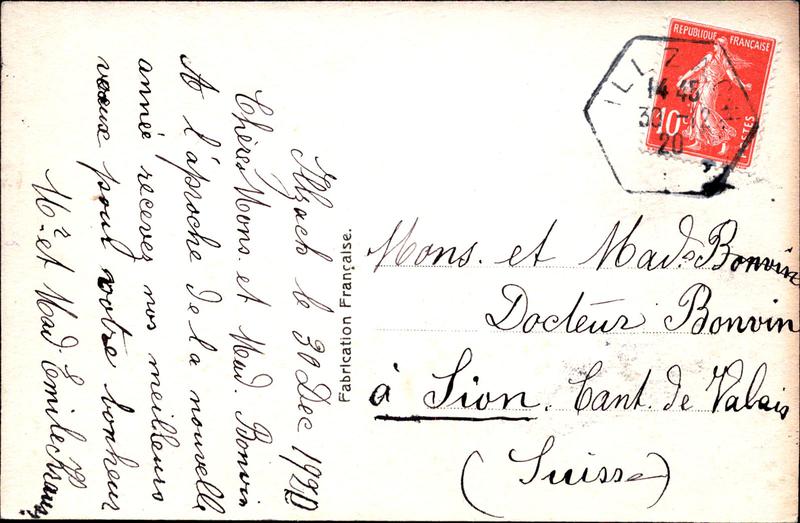 Illzach le 30 Dec 1920
Chères Mons. et Mad. Bonvin
A l'aproche de la nouvelle
année receves nos meilleurs
voeux pour votre bonheur
Mr. et Mad. Emile
Fabrication Française.
REPUBLIQUE FRANÇAISE
10
POSTES
ILLZACH
14 45
30 - 12
20
Mons. et Mad. Bonvin
Docteur Bonvin
à Sion. Cant. de Valais
(Suisse)